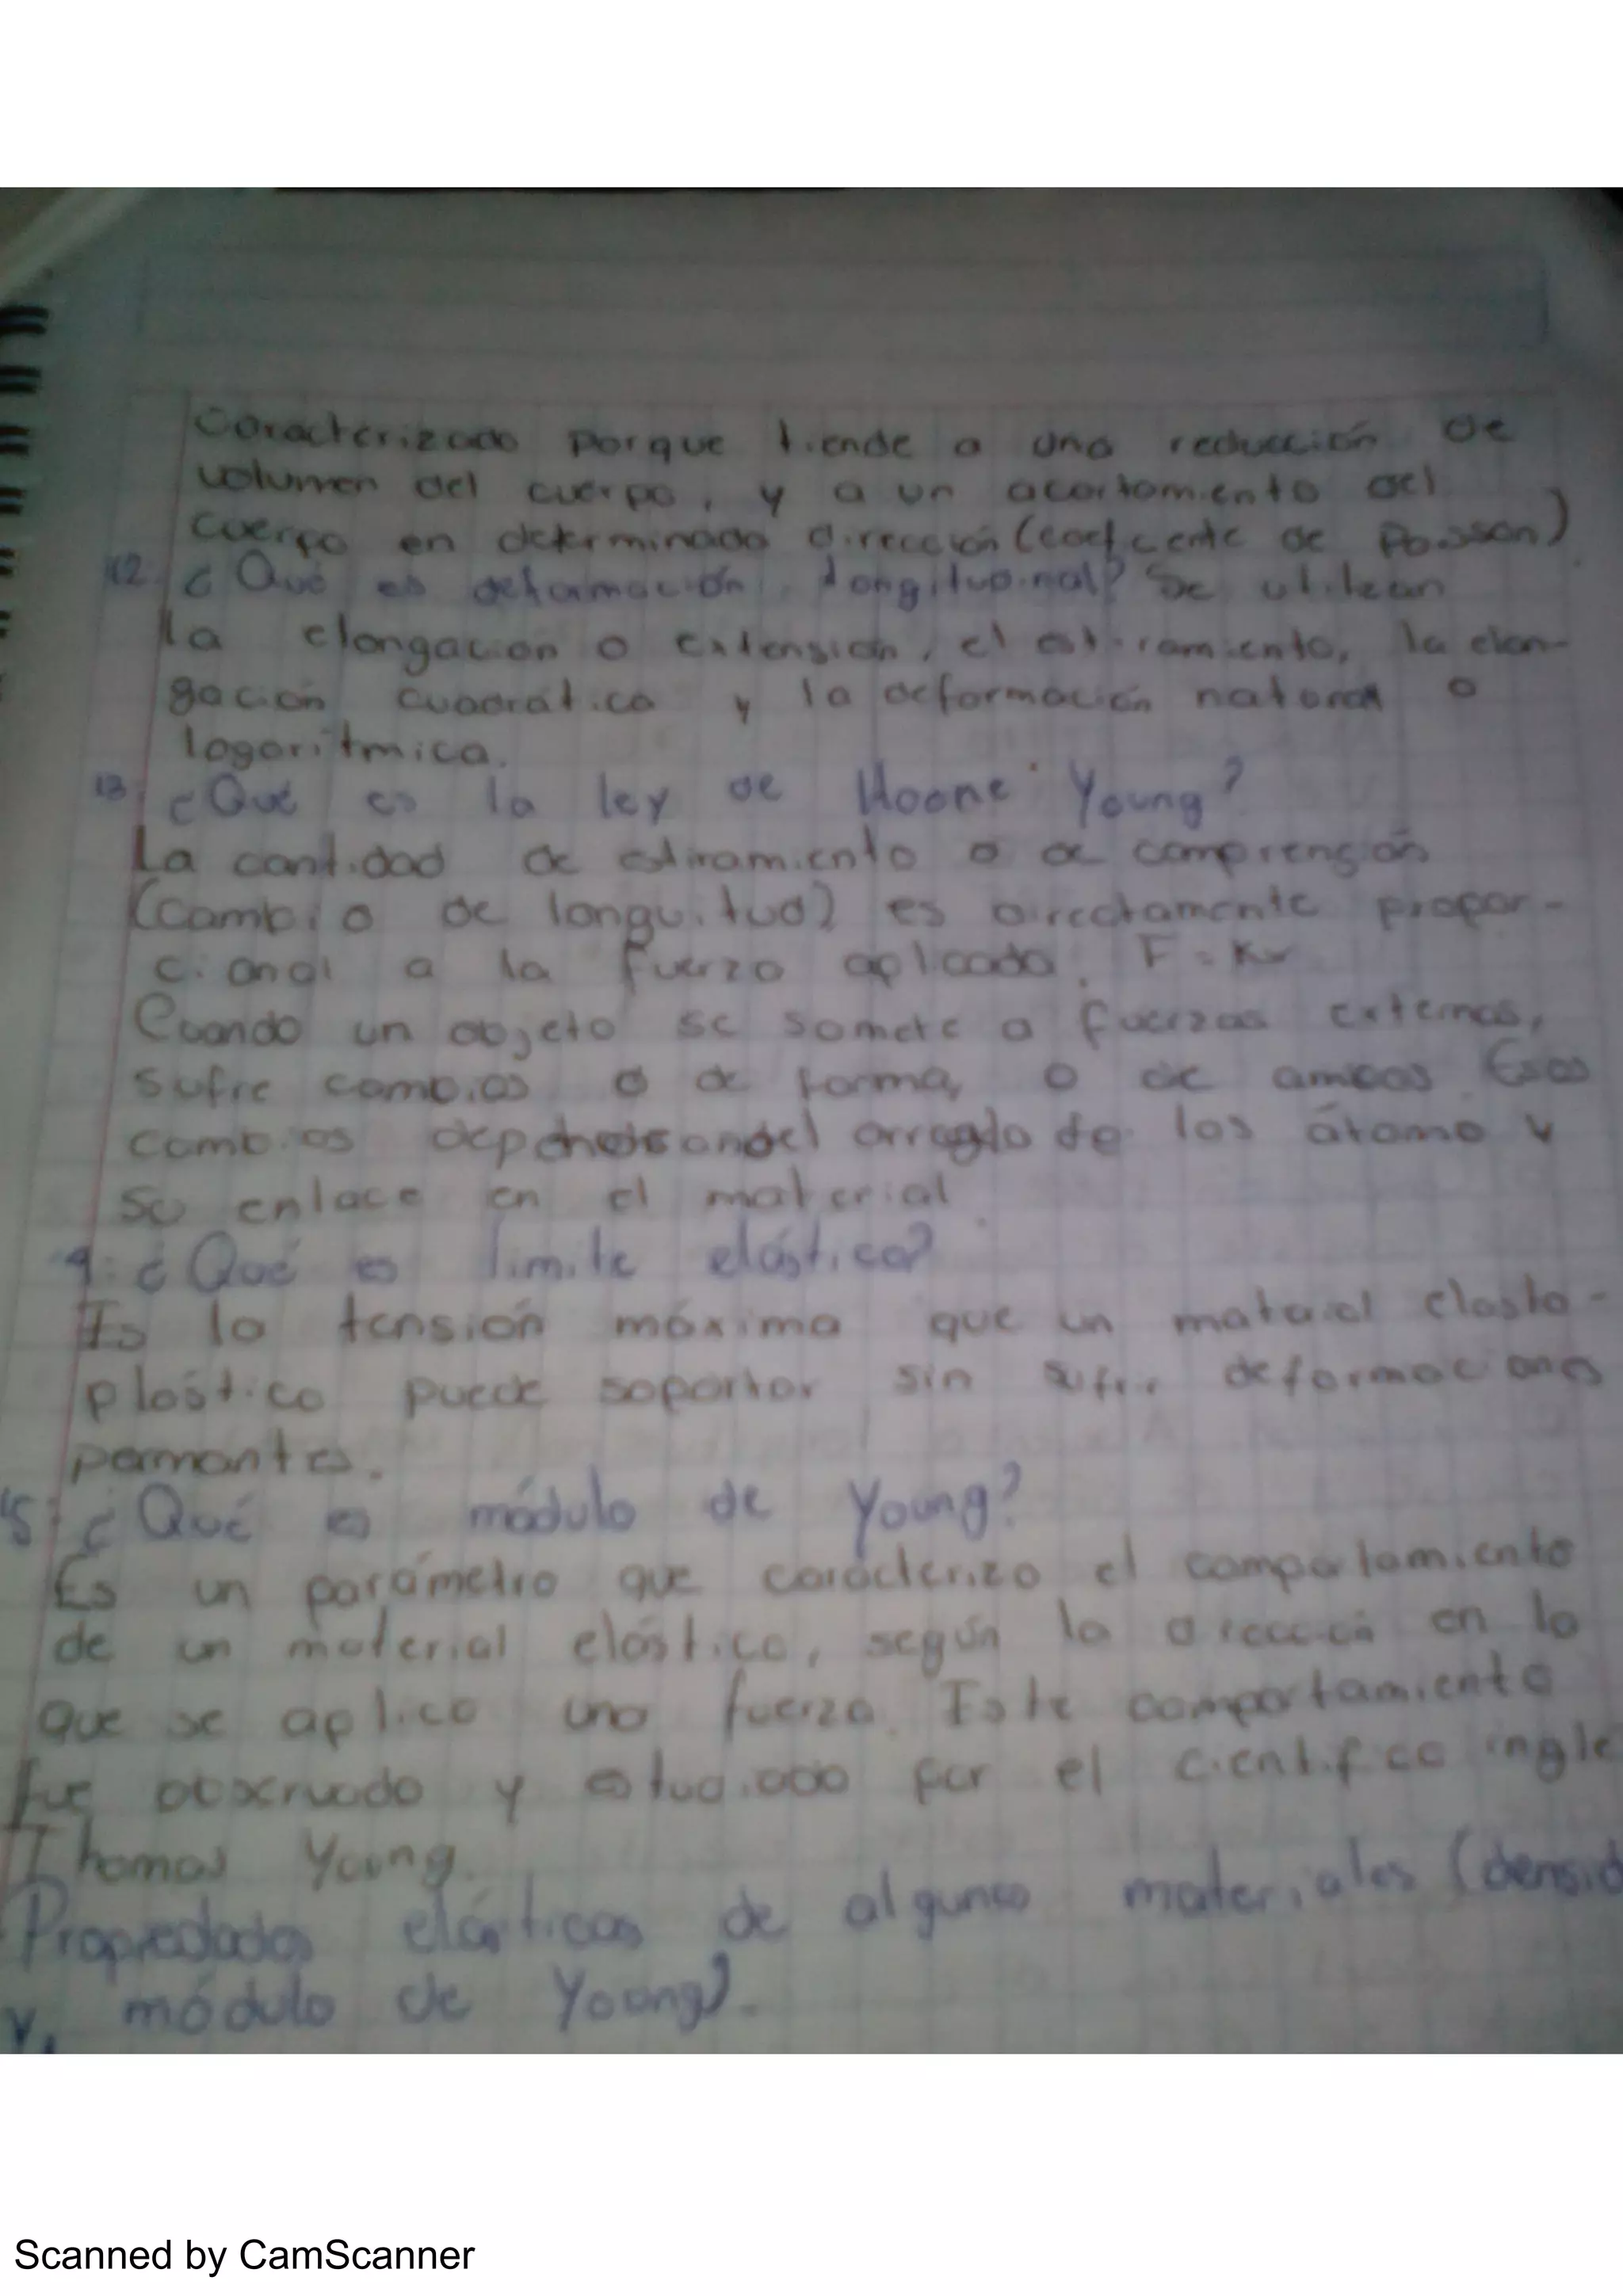 caracterizado porque tiende a una reducción de
volumen del cuerpo, y a un acortamiento del
cuerpo en determinada dirección (coeficiente de Poisson)
12. ¿Qué es deformación longitudinal? Se utilizan
la elongación o extensión, el estiramiento, la elon-
gación cuadrática y la deformación natural o
logarítmica.
13. ¿Qué es la ley de Hoone Young?
La cantidad de estiramiento o de comprensión
(cambio de longuitud) es directamente propor-
cional a la fuerza aplicada. F = Kx
Cuando un objeto se somete a fuerzas externas,
sufre cambios o de forma, o de amcas Esos
cambios del arreglo de los átomo y
su enlace en el material
4. ¿Qué es limite elástico?
Es la tensión máxima que un material elasto-
plástico puede soportar sin sufrir deformaciones
permanentes.
15. ¿Qué es módulo de Young?
Es un parámetro que caracteriza el comportamiento
de un material elástico, según la dirección en la
que se aplica una fuerza. Este comportamiento
fue observado y estudiado por el científico ingle
Thomas Young.
Propiedades elásticas de algunos materiales (densid
y módulo de Young).
Scanned by CamScanner